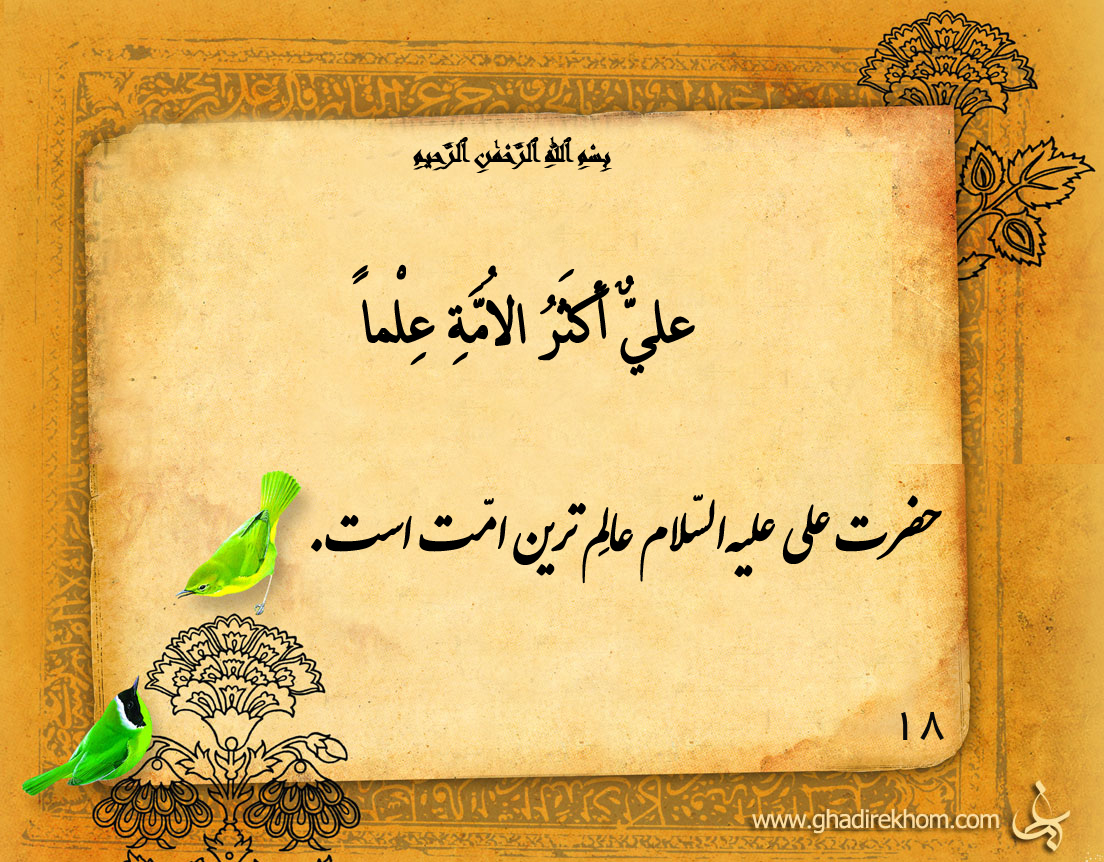 بِسْمِ ٱللهِ ٱلرَّحْمٰنِ ٱلرَّحِيمِ
عليٌّ أَكثَرُ الاُمَّةِ عِلْماً
حضرت علی علیه السّلام عالِم ترین امّت است.
۱۸
www.ghadirekhom.com